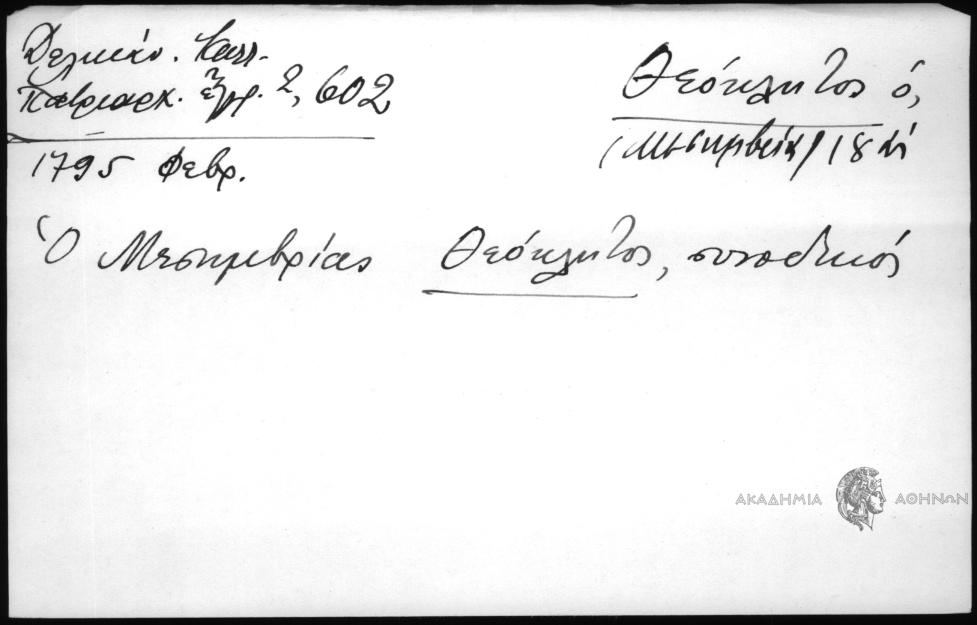 Δελικάν. Καλλ.
Πατριαρχ. ἔγγρ. 2, 602
Θεόκλητος ὁ,
(Μεσημβρίας) 18 αἰ
1795 Φεβρ.
Ὁ Μεσημβρίας Θεόκλητος, συνοδικός
ΑΚΑΔΗΜΙΑ ΑΘΗΝΩΝ